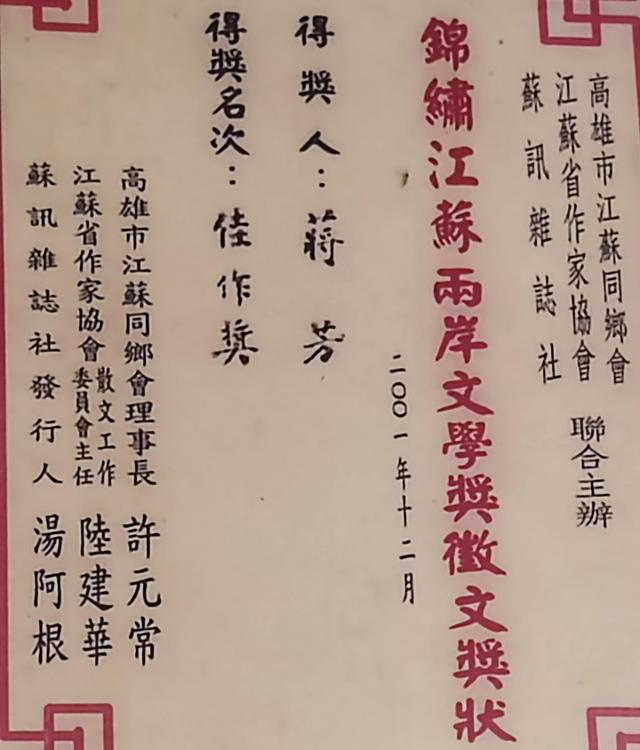 高雄市江蘇同鄉會
江蘇省作家協會
蘇訊雜誌社
聯合主辦
錦繡江蘇兩岸文學獎徵文獎狀
二〇〇一年十二月
得獎人：蔣芳
得獎名次：佳作獎
高雄市江蘇同鄉會理事長 許元常
江蘇省作家協會散文工作委員會主任 陸建華
蘇訊雜誌社發行人 湯阿根